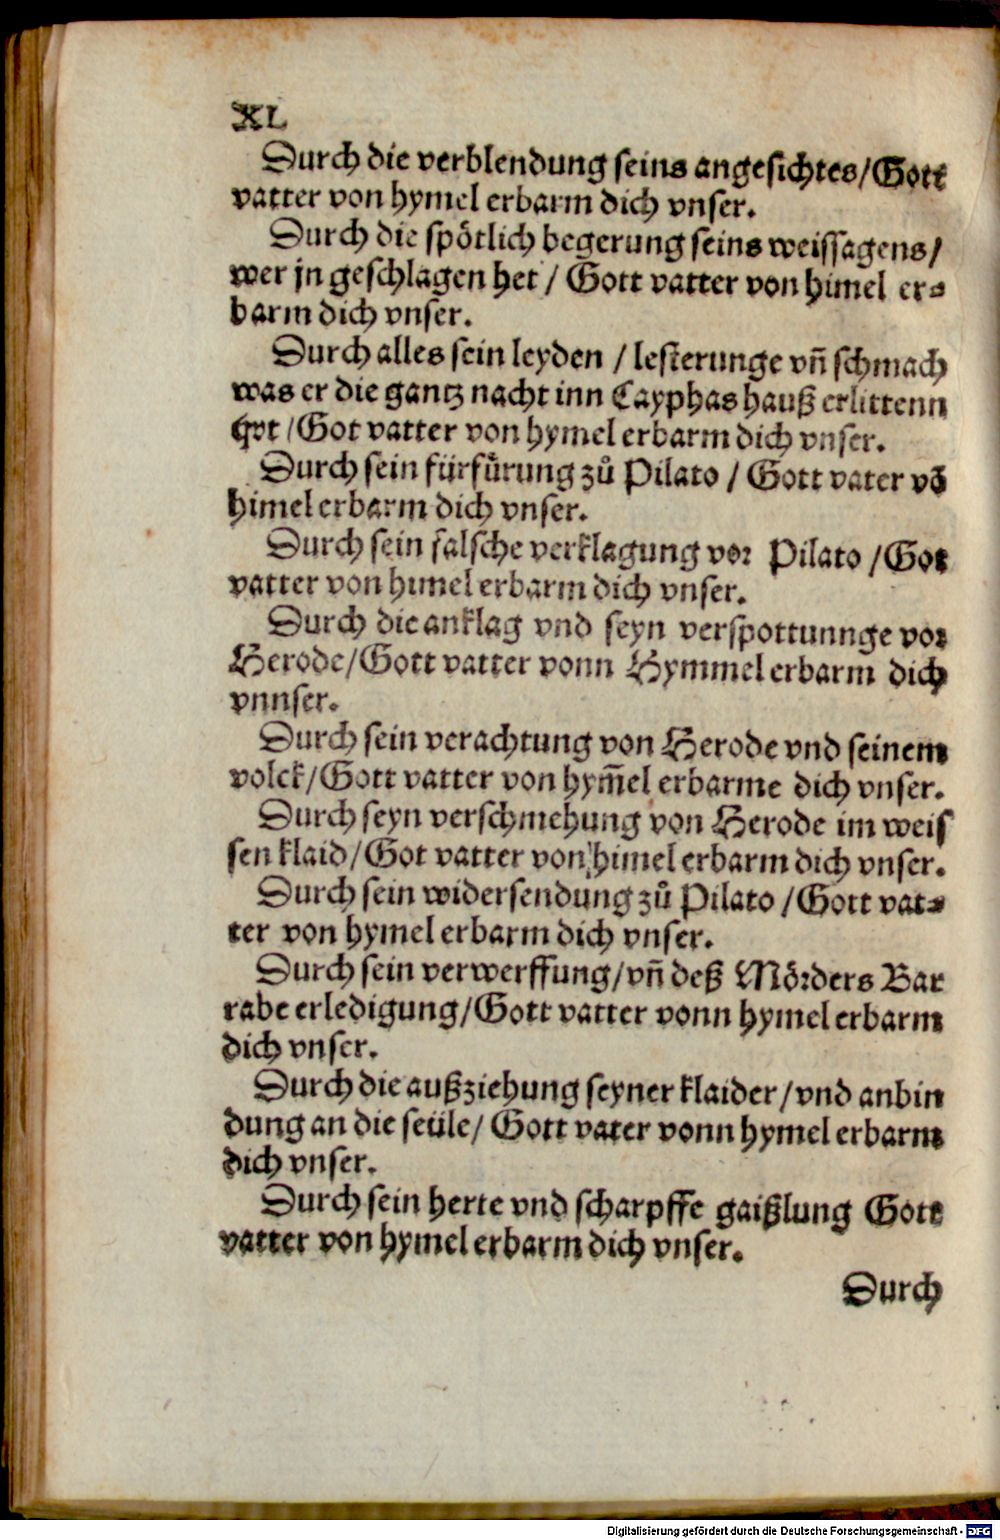 XL
Durch die verblendung seins angesichtes/Gott
vatter von hymel erbarm dich vnser.
Durch die spötlich begerung seins weissagens/
wer jn geschlagen het / Gott vatter von himel er⸗
barm dich vnser.
Durch alles sein leyden / lesterunge vñ schmach
was er die gantz nacht inn Cayphas hauß erlittenn
hot /Got vatter von hymel erbarm dich vnser.
Durch sein fürfůrung zů Pilato / Gott vater võ
himel erbarm dich vnser.
Durch sein falsche verklagung vor Pilato /Got
vatter von himel erbarm dich vnser.
Durch die anklag vnd seyn verspottunnge vor
Herode/Gott vatter vonn Hymmel erbarm dich
vnnser.
Durch sein verachtung von Herode vnd seinem
volck/Gott vatter von hym̃el erbarme dich vnser.
Durch seyn verschmehung von Herode im weis
sen klaid/Got vatter von himel erbarm dich vnser.
Durch sein widersendung zů Pilato /Gott vat⸗
ter von hymel erbarm dich vnser.
Durch sein verwerffung/vñ deß Mörders Bar
rabe erledigung/Gott vatter vonn hymel erbarm
dich vnser.
Durch die außziehung seyner klaider/vnd anbin
dung an die seüle/ Gott vater vonn hymel erbarm
dich vnser.
Durch sein herte vnd scharpffe gaißlung Gott
vatter von hymel erbarm dich vnser.
Durch
Digitalisierung gefördert durch die Deutsche Forschungsgemeinschaft - DFG